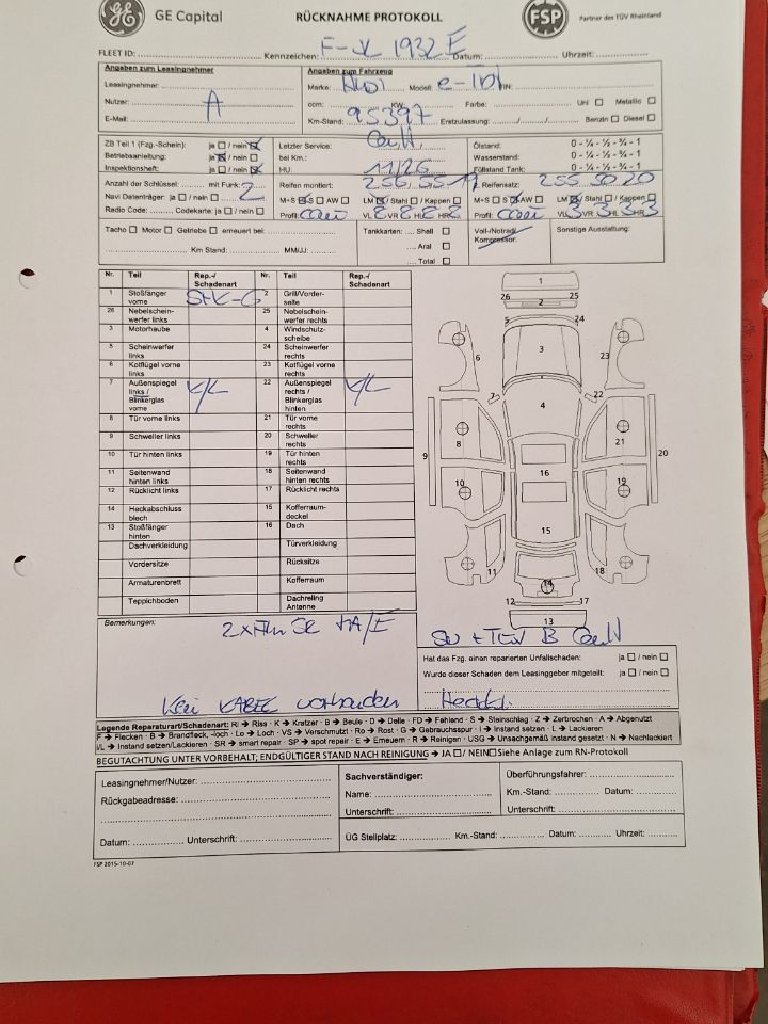 GE Capital RÜCKNAHME PROTOKOLL FSP Partner des TÜV Rheinland
FLEET ID: Kennzeichen: F-X 1932 E Datum: Uhrzeit:
Angaben zum Leasingnehmer Angaben zum Fahrzeug
Leasingnehmer: Marke: Audi Modell: VIN:
Nutzer: A ccm: KW: Farbe: Uni Metallic
E-Mail: Km-Stand: 95397 Erstzulassung: Benzin Diesel
ZB Teil 1 (Fzg.-Schein): ja / nein Letzter Service: Ölstand: 0 - ¼ - ½ - ¾ - 1
Betriebsanleitung: ja / nein bei Km.: Wasserstand: 0 - ¼ - ½ - ¾ - 1
Inspektionsheft: ja / nein HU: 11/26 Füllstand Tank: 0 - ¼ - ½ - ¾ - 1
Anzahl der Schlüssel: mit Funk: 2 Reifen montiert: 255 55 19 Reifensatz: 255 50 20
Navi Datenträger: ja / nein M+S S AW LM / Stahl / Kappen M+S S AW LM / Stahl / Kappen
Radio Code: Codekarte: ja / nein Profil: VL VR HL HR Profil: VL 3 VR 3 HL 3 HR 3
Tacho Motor Getriebe erneuert bei: Tankkarten: Shell Voll-/Notrad/ Sonstige Ausstattung:
Aral Kompressor
Km Stand: MM/JJ: Total
Nr. Teil Rep.-/ Schadenart Nr. Teil Rep.-/ Schadenart
1 Stoßfänger vorne 2 Grill/Vorderseite
26 Nebelscheinwerfer links 25 Nebelscheinwerfer rechts
3 Motorhaube 4 Windschutzscheibe
5 Scheinwerfer links 24 Scheinwerfer rechts
6 Kotflügel vorne links 23 Kotflügel vorne rechts
7 Außenspiegel links / Blinkerglas vorne V/L 22 Außenspiegel rechts / Blinkerglas hinten V/L
8 Tür vorne links 21 Tür vorne rechts
9 Schweller links 20 Schweller rechts
10 Tür hinten links 19 Tür hinten rechts
11 Seitenwand hinten links 18 Seitenwand hinten rechts
12 Rücklicht links 17 Rücklicht rechts
14 Heckabschluss blech 15 Kofferraumdeckel
13 Stoßfänger hinten 16 Dach
Dachverkleidung Türverkleidung
Vordersitze Rücksitze
Armaturenbrett Kofferraum
Teppichboden Dachreling Antenne
1
26 25
2
5 24
6 3 23
7 22
4
8 21
9 20
16
10 19
15
11 18
14
12 17
13
Bemerkungen:
Hat das Fzg. einen reparierten Unfallschaden: ja / nein
Wurde dieser Schaden dem Leasinggeber mitgeteilt: ja / nein
Kein KABEL vorhanden
Legende Reparaturart/Schadenart: Ri → Riss · K → Kratzer · B → Beule · D → Delle · FD → Fehlend · S → Steinschlag · Z → Zerbrochen · A → Abgenutzt
F → Flecken · B → Brandfleck, -loch · Lo → Loch · VS → Verschmutzt · Ro → Rost · G → Gebrauchsspur · I → Instand setzen · L → Lackieren
I/L → Instand setzen/Lackieren · SR → smart repair · SP → spot repair · E → Erneuern · R → Reinigen · USG → Unsachgemäß instand gesetzt · N → Nachlackiert
BEGUTACHTUNG UNTER VORBEHALT; ENDGÜLTIGER STAND NACH REINIGUNG → JA / NEIN Siehe Anlage zum RN-Protokoll
Leasingnehmer/Nutzer: Sachverständiger: Überführungsfahrer:
Rückgabeadresse: Name: Km.-Stand: Datum:
Unterschrift: Unterschrift:
Datum: Unterschrift: ÜG Stellplatz: Km.-Stand: Datum: Uhrzeit:
FSP 2015-10-07